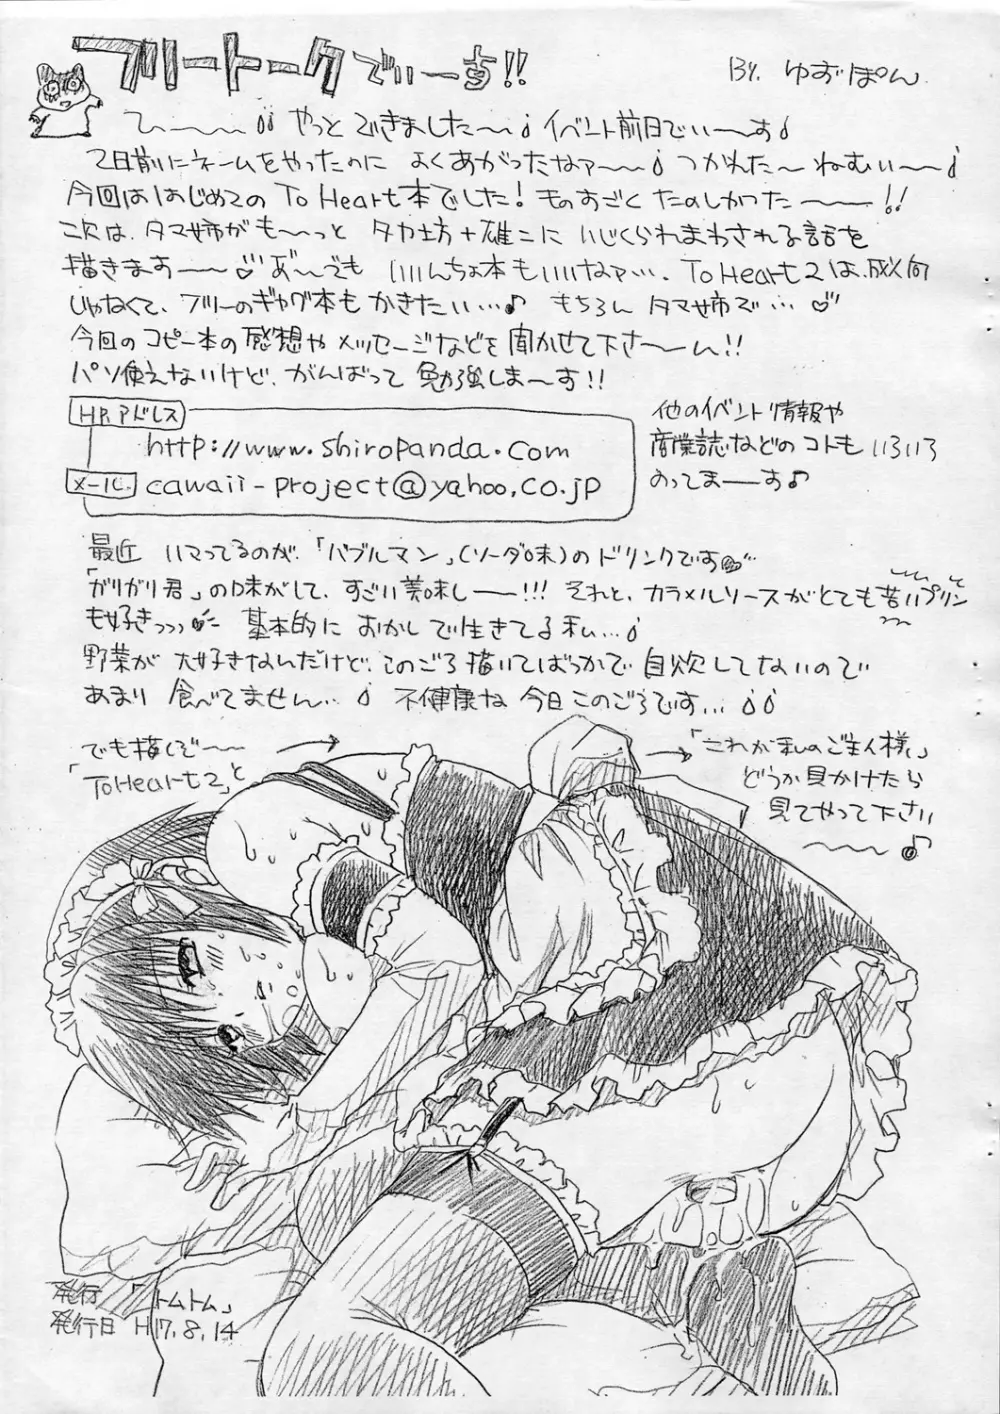 フリートークでぃーす!!
BY. ゆずぽん
ひ〜〜〜 やっとできました〜 イベント前日でぃ〜す
2日前にネームをやったのに よくあがったなァ〜〜 つかれた〜 ねむぃ〜〜
今回ははじめての To Heart本でした! ものすごく たのしかった〜〜!!
次は、タマ姉がも〜っと タカ坊+雄二に いじくられまわされる話を
描きます〜〜♡ あ゛〜でも いいんちょ本もいいなァ…。To Heart2は、成人向
じゃなくて、フツーのギャグ本も かきたぃ…♪ もちろん タマ姉で…♡
今回の コピー本の 感想や メッセージなどを 聞かせて下さ〜〜ん!!
パソ使えないけど、がんばって 勉強しま〜す!!
HP.アドレス
http://www.shiropanda.com
メール.
cawaii-project@yahoo.co.jp
他のイベント情報や
商業誌などのコトも いろいろ
のってま〜す♪
最近 ハマってるのが、「バブルマン」(ソーダ味)のドリンクです
「ガリガリ君」の味がして、すごい美味し〜〜!!! それと、カラメルソースがとても苦いプリン
も好きっっっ 基本的に おかしで生きてる私…
野菜が 大好きなんだけど、このごろ描いてばっかで 自炊してないので
あまり 食べてません… 不健康な 今日このごろです…
でも描くぞ〜〜
「ToHeart2」と
→「これが私のご主人様」
どうか見かけたら
見てやって下さい
〜〜♪
発行 「トムトム」
発行日 H17.8.14